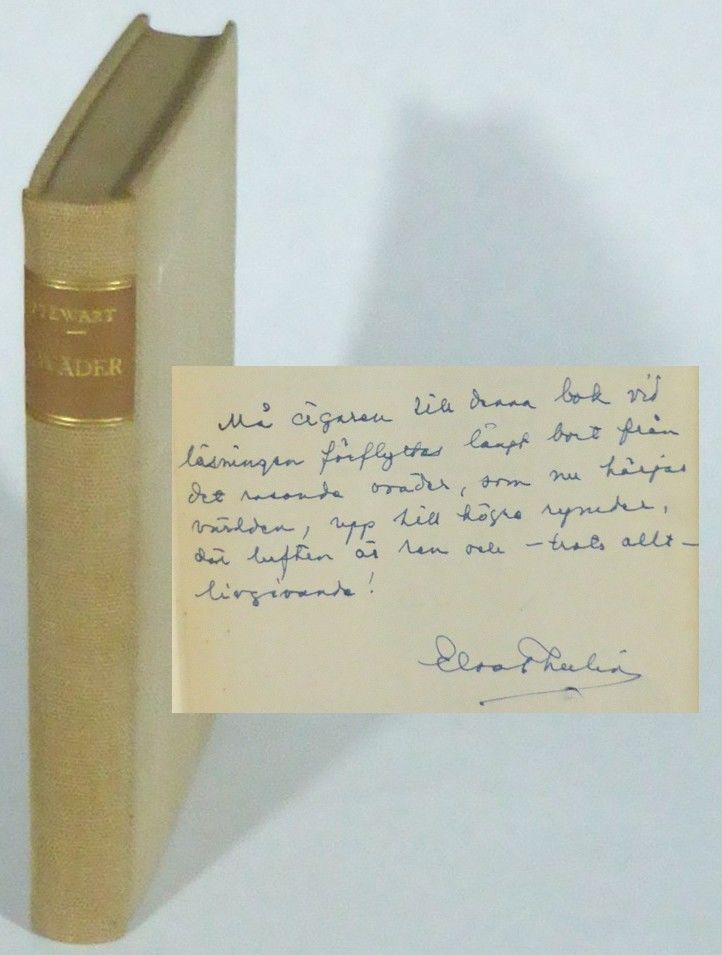 STEWART
OVÄDER
Må ägaren till denna bok vid
läsningen förflyttas långt bort från
det rasande oväder, som nu härjar
världen, upp till högre rymder,
där luften är ren och – trots allt –
livgivande!
Elsa Thulin